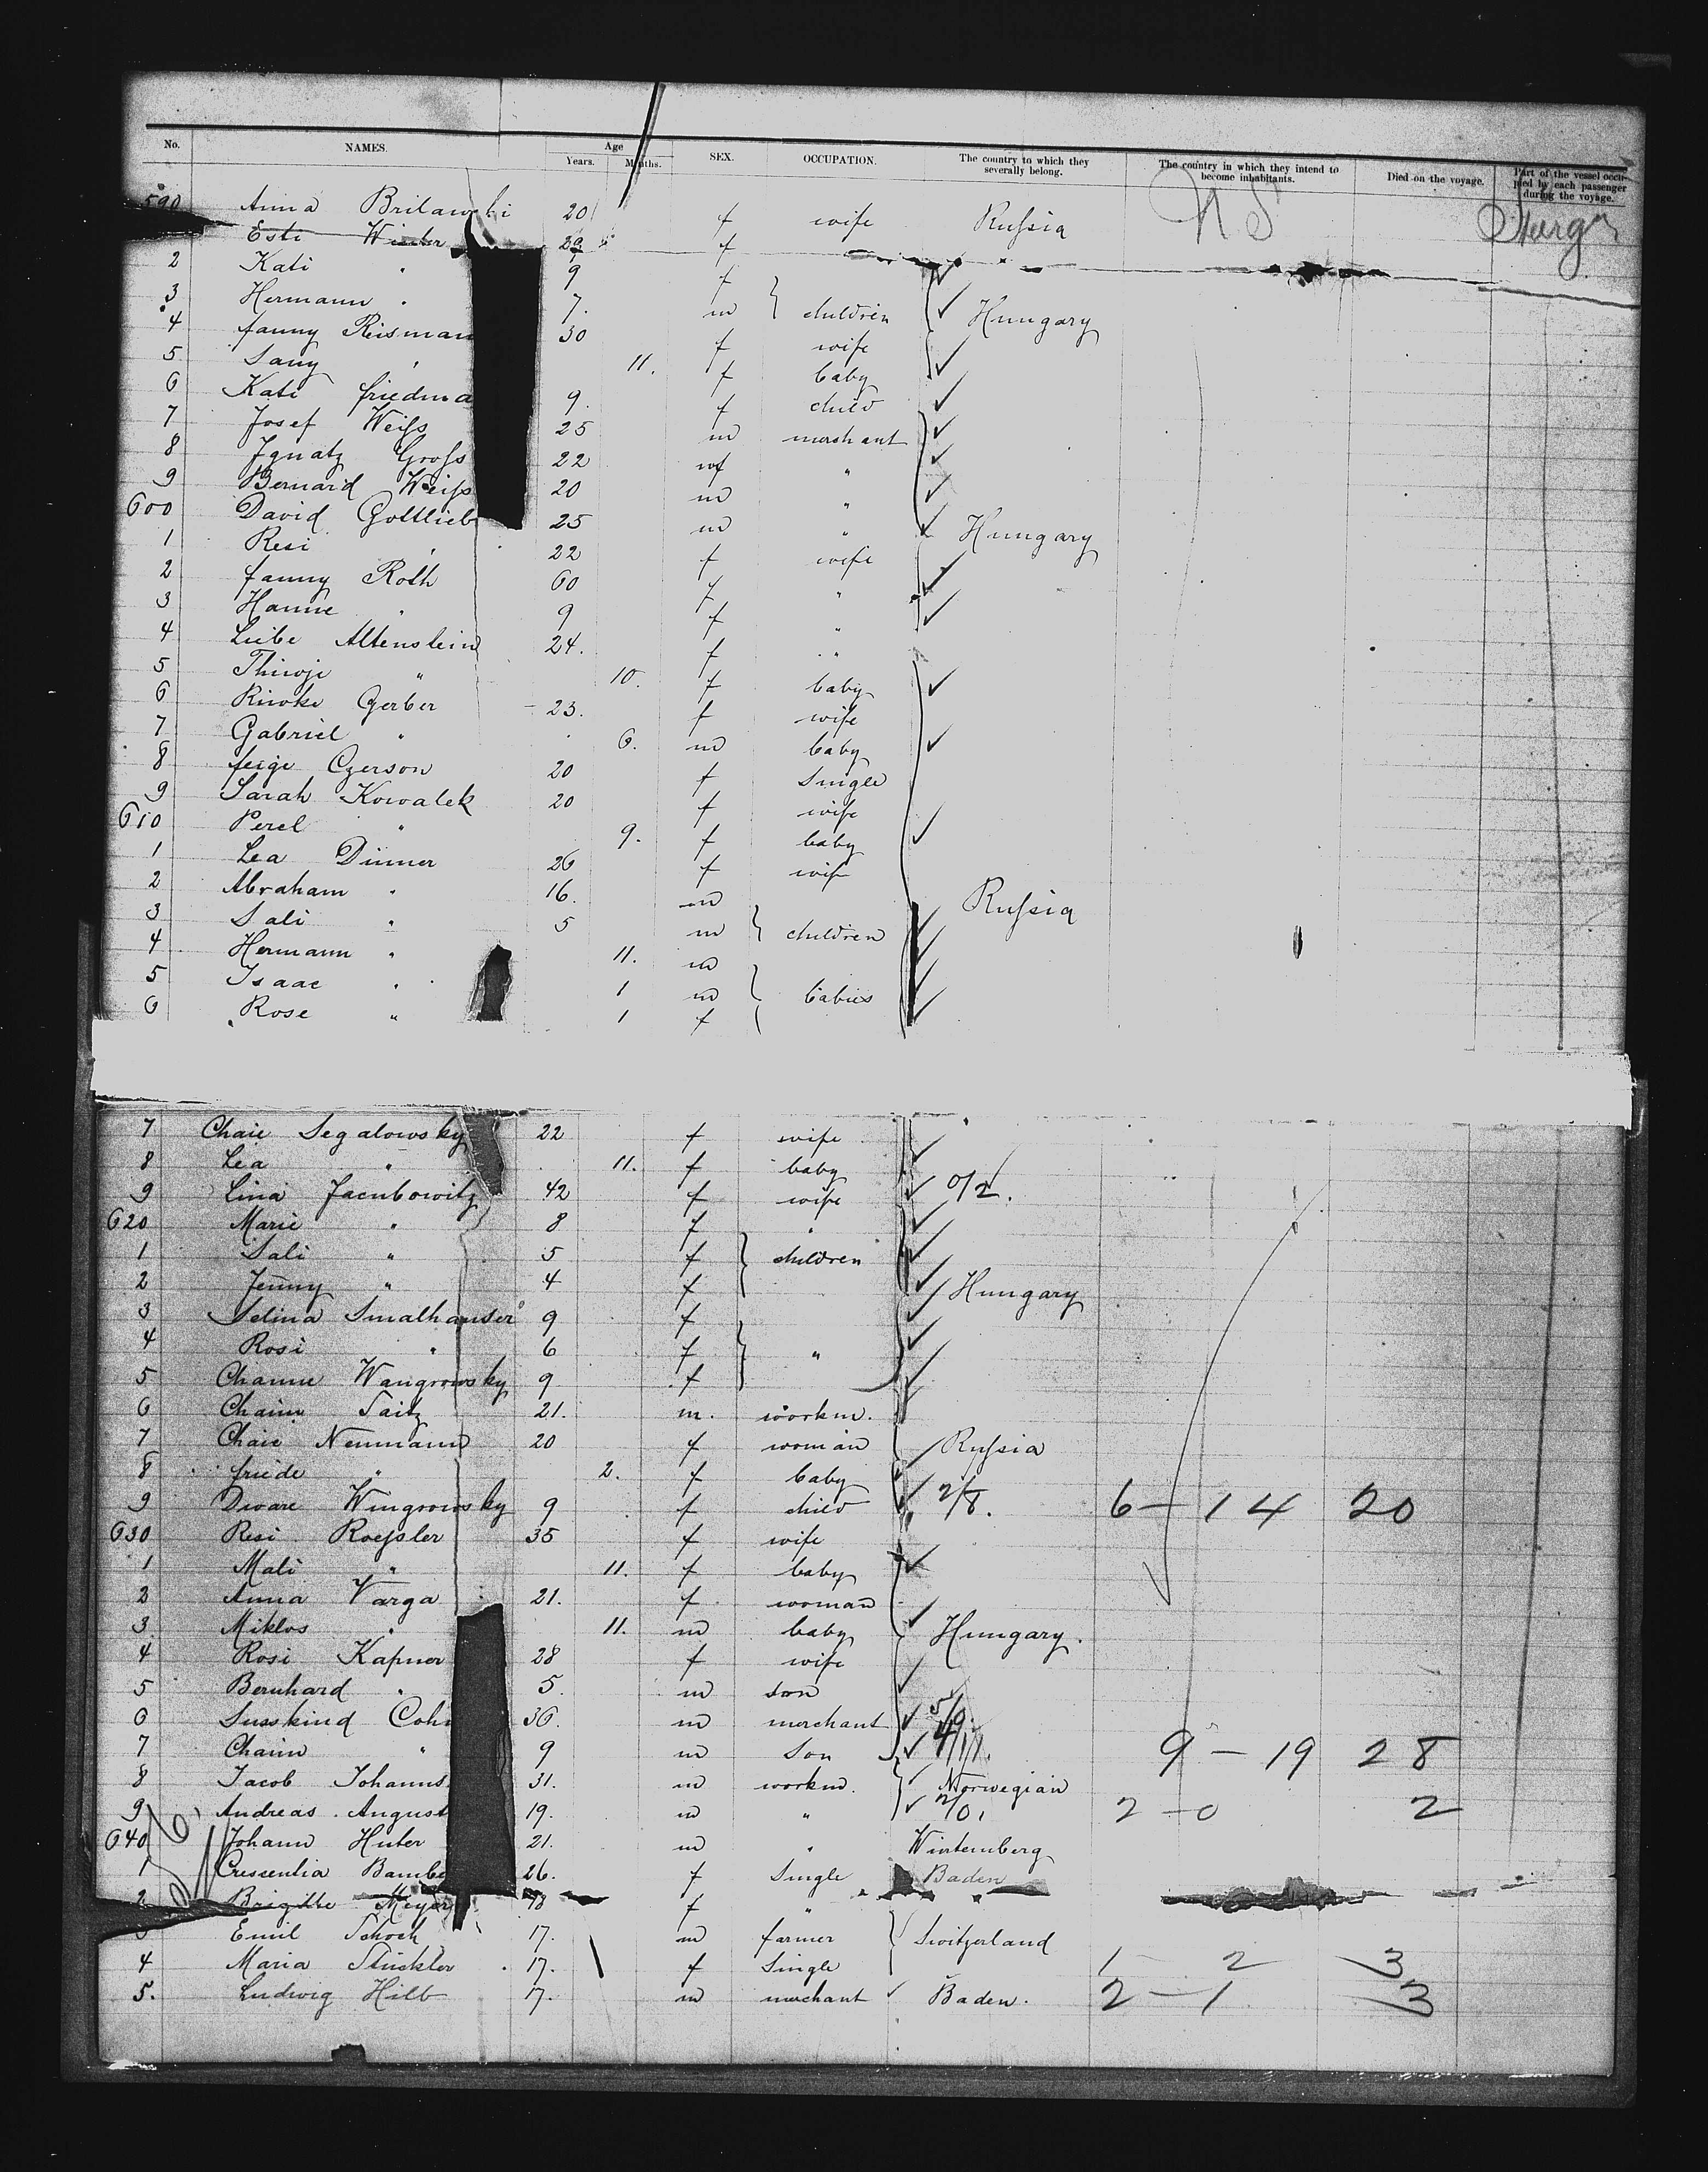 No. NAMES. Age Years. Months. SEX. OCCUPATION. The country to which they severally belong. The country in which they intend to become inhabitants. Died on the voyage. Part of the vessel occupied by each passenger during the voyage.
590 Anna 20 f wife Russia U S
Esti Winter 29 f
2 Kati " 9 f
3 Hermann " 7. m children Hungary
4 fanny Reisman 30 f wife
5 Sany " 11. f baby
6 Kati friedma 9. f child
7 Josef Weiss 25 m merchant
8 Ignatz Gross 22 m "
9 Bernard Weiss 20 m "
600 David Gottlieb 25 m " Hungary
1 Resi " 22 f wife
2 fanny Roth 60 f "
3 Hanne " 9 f "
4 Liebe Altenstein 24. f "
5 " 10. f baby
6 Riwke Gerber 23. f wife
7 Gabriel " 6. m baby
8 feige Gerson 20 f Single
9 Sarah Kowalek 20 f wife
610 Perel " 9. f baby
1 Lea Dinner 26 f wife
2 Abraham " 16. m Russia
3 Sali " 5 m children
4 Hermann " 11. m
5 Isaac " 1 m babies
6 Rose " 1 f
7 Chaie Segalowsky 22 f wife
8 Lea " 11. f baby
9 Lina Jacubowitz 42 f wife 0/2.
620 Marie " 8 f "
1 Sali " 5 f children
2 Jenny " 4 f Hungary
3 Selina Smalhauser 9 f
4 Rosi " 6 f "
5 Channe Wangrowsky 9 f
6 Chaim Saitz 21. m. workm.
7 Chaie Neumann 20 f woman Russia
8 friede " 2. f baby
9 Dware Wingrowsky 9 f child 2/8. 6 – 14 20
630 Resi Roessler 35 f wife
1 Mali " 11. f baby
2 Anna Varga 21. f woman
3 Miklos " 11. m baby Hungary.
4 Rosi Kapner 28 f wife
5 Bernhard " 5. m son
6 Susskind Cohn 36. m merchant 5/9.
7 Chaim " 9 m Son 9 – 19 28
8 Jacob Johanns 31. m workm. Norwegian
9 Andreas August 19. m " 2/0. 2 – 0 2
640 Johann Huber 21. m " Wirtemberg
1 Crescentia Bambe 26. f Single Baden
2 Brigitte Meyer 18 f "
Emil Schoch 17. m farmer Switzerland
4 Maria Stückler 17. f Single 1 2 3
5. Ludwig Hilb 17. m merchant Baden. 2 – 1 3